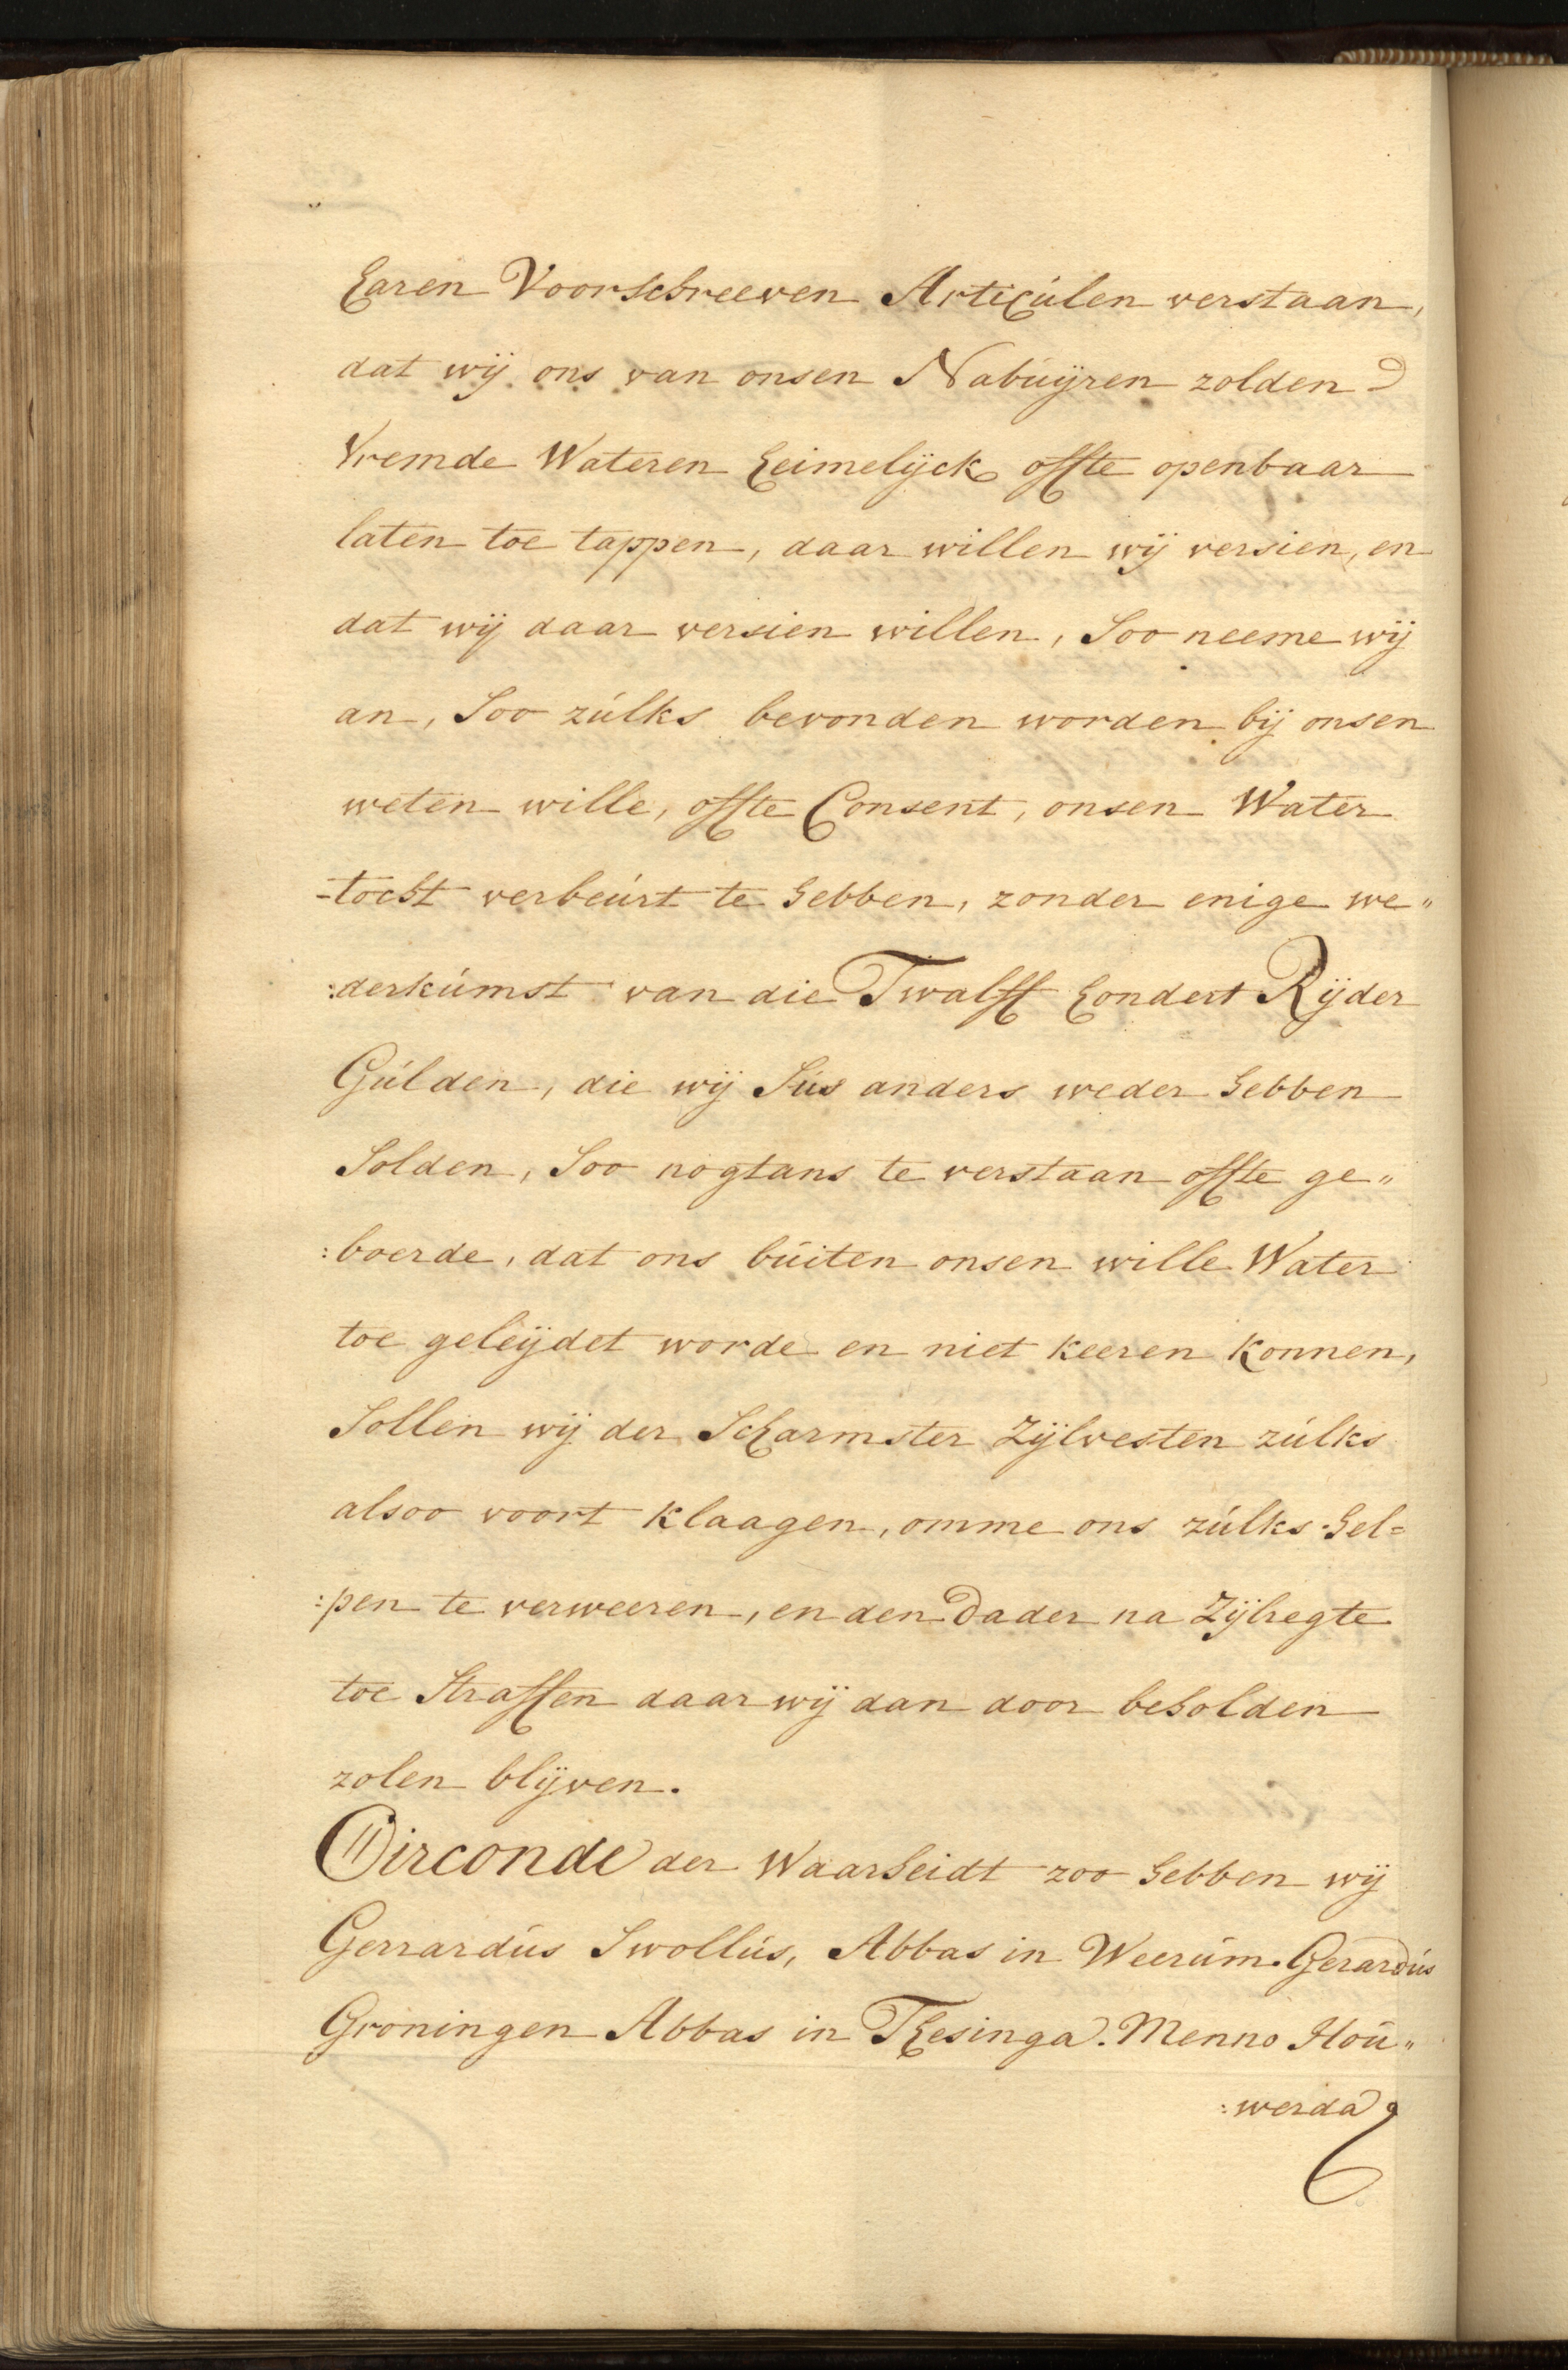 haren Voorschreeven Articúlen verstaan,
dat wij ons van onsen Nabúijren zolden
vremde Wateren heimelijck offte openbaar
laten toe tappen, daar willen wij versien, en
dat wij daar versien willen, Soo neeme wij
an, Soo zúlks bevonden worden bij onsen
weten wille, offte Consent, onsen Water
-tocht verbeúrt te hebben, zonder enige we„
:derkúmst van die Twalff hondert Rijder
Gúlden, die wij Sús anders weder hebben
Solden, Soo nogtans te verstaan offte ge„
:boerde, dat ons búiten onsen wille Water
toe geleijdet worde en niet keeren konnen,
Sollen wij der Scharmster Zijlvesten zúlks
alsoo voort klaagen, omme ons zúlks hel=
:pen te verweeren, en den Dader na Zijlregte
toe Straffen daar wij dan door beholden
zolen blijven.
Oirconde der Waarheidt zoo hebben wij
Gerrardús Swollús, Abbas in Weerúm. Gerardús
Groningen Abbas in Thesinga. Menno Hoú„
:werda